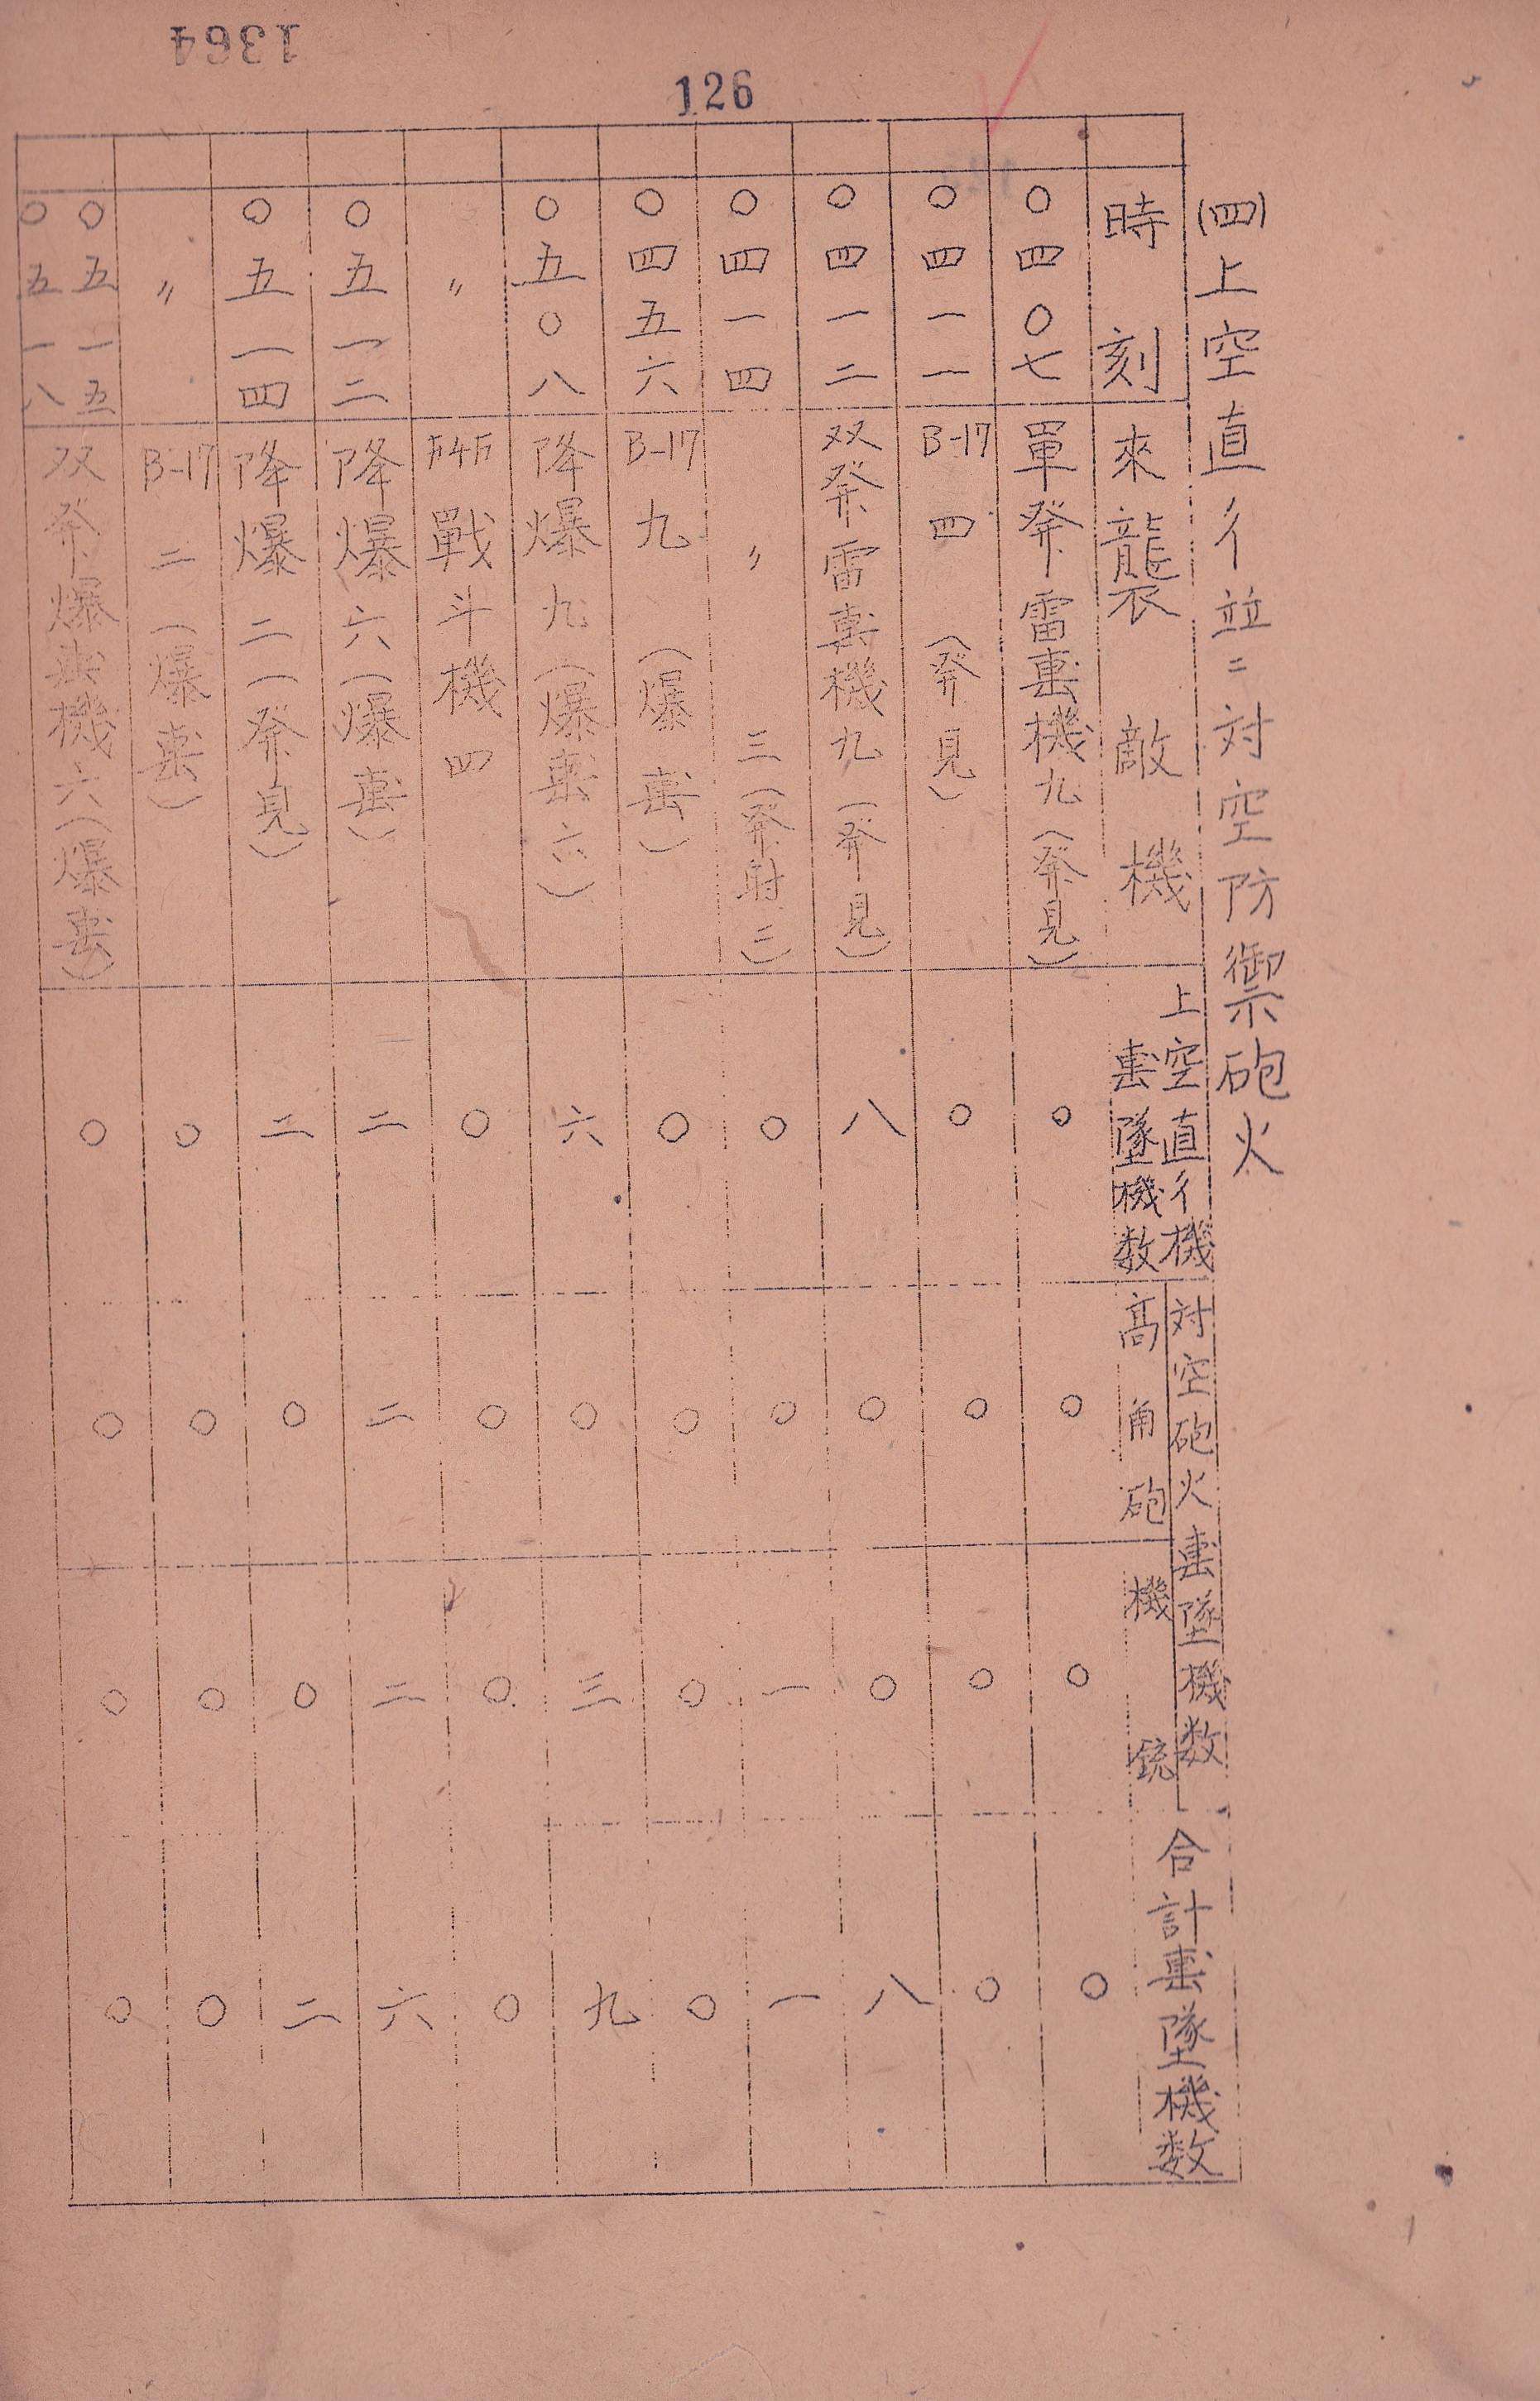 1364
126
(四)上空直彳並ニ対空防禦砲火
時刻 來襲敵機 上空直彳機 撃墜機数 対空砲火撃墜機数 高角砲 機銃 合計撃墜機数
〇四〇七 單発雷撃機九(発見) 〇 〇 〇 〇
〇四一一 B-17 四 (発見) 〇 〇 〇 〇
〇四一二 双発雷撃機九(発見) 八 〇 〇 八
〇四一四 〃 三(発射二) 〇 〇 一 一
〇四五六 B-17 九 (爆撃) 〇 〇 〇 〇
〇五〇八 降爆九(爆撃六) 六 〇 三 九
〃 F4F戦斗機四 〇 〇 〇 〇
〇五一二 降爆六(爆撃) 二 二 二 六
〇五一四 降爆二(発見) 二 〇 〇 二
〃 B-17 二 (爆撃) 〇 〇 〇 〇
〇五一五
〇五一八 双発爆撃機六(爆撃) 〇 〇 〇 〇